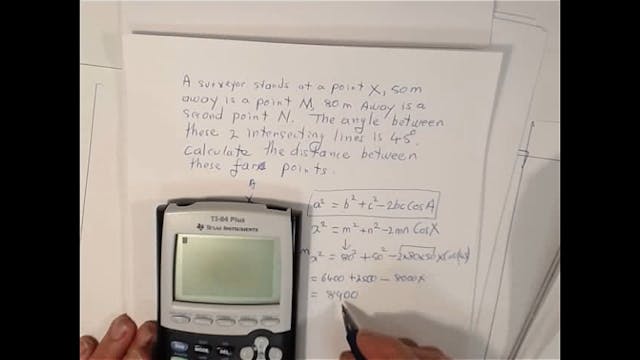 A surveyor stands at a point X, 50m
away is a point M, 80m Away is a
second point N. The angle between
these 2 intersecting lines is 45°.
Calculate the distance between
these far points.
A
a² = b² + c² - 2bc Cos A
x² = m² + n² - 2mn Cos X
x² = 80² + 50² - 2x80x50 x Cos(45)
= 6400 + 2500 - 8000x
= 8900
TI-84 Plus
TEXAS INSTRUMENTS